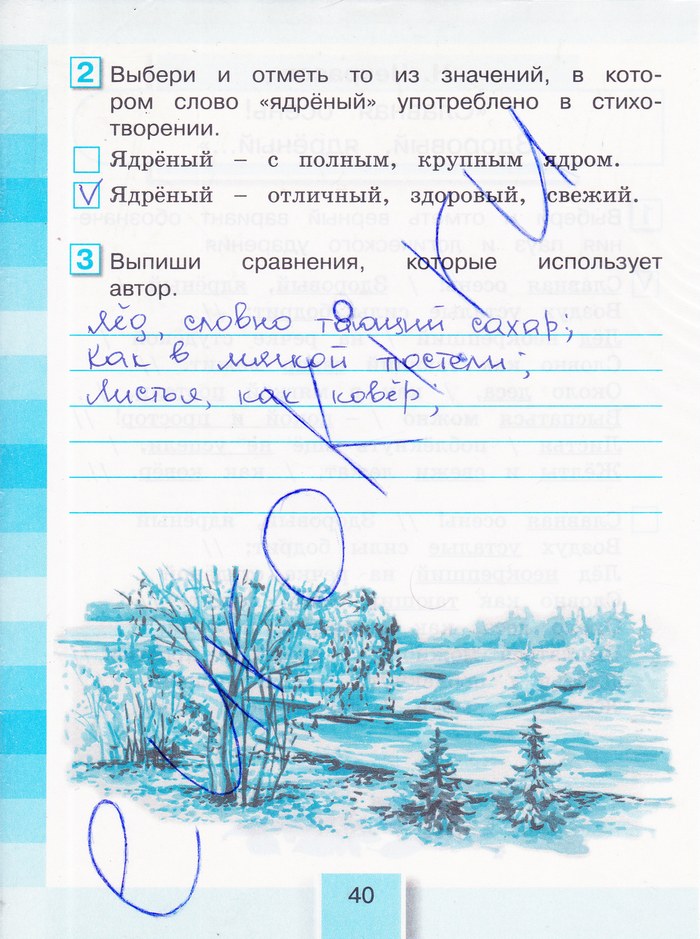 2 Выбери и отметь то из значений, в кото-
ром слово «ядрёный» употреблено в стихо-
творении.
Ядрёный – с полным, крупным ядром.
V Ядрёный – отличный, здоровый, свежий.
3 Выпиши сравнения, которые использует
автор.
Лёд, словно тающий сахар;
Как в мягкой постели;
Листья, как ковёр;
40